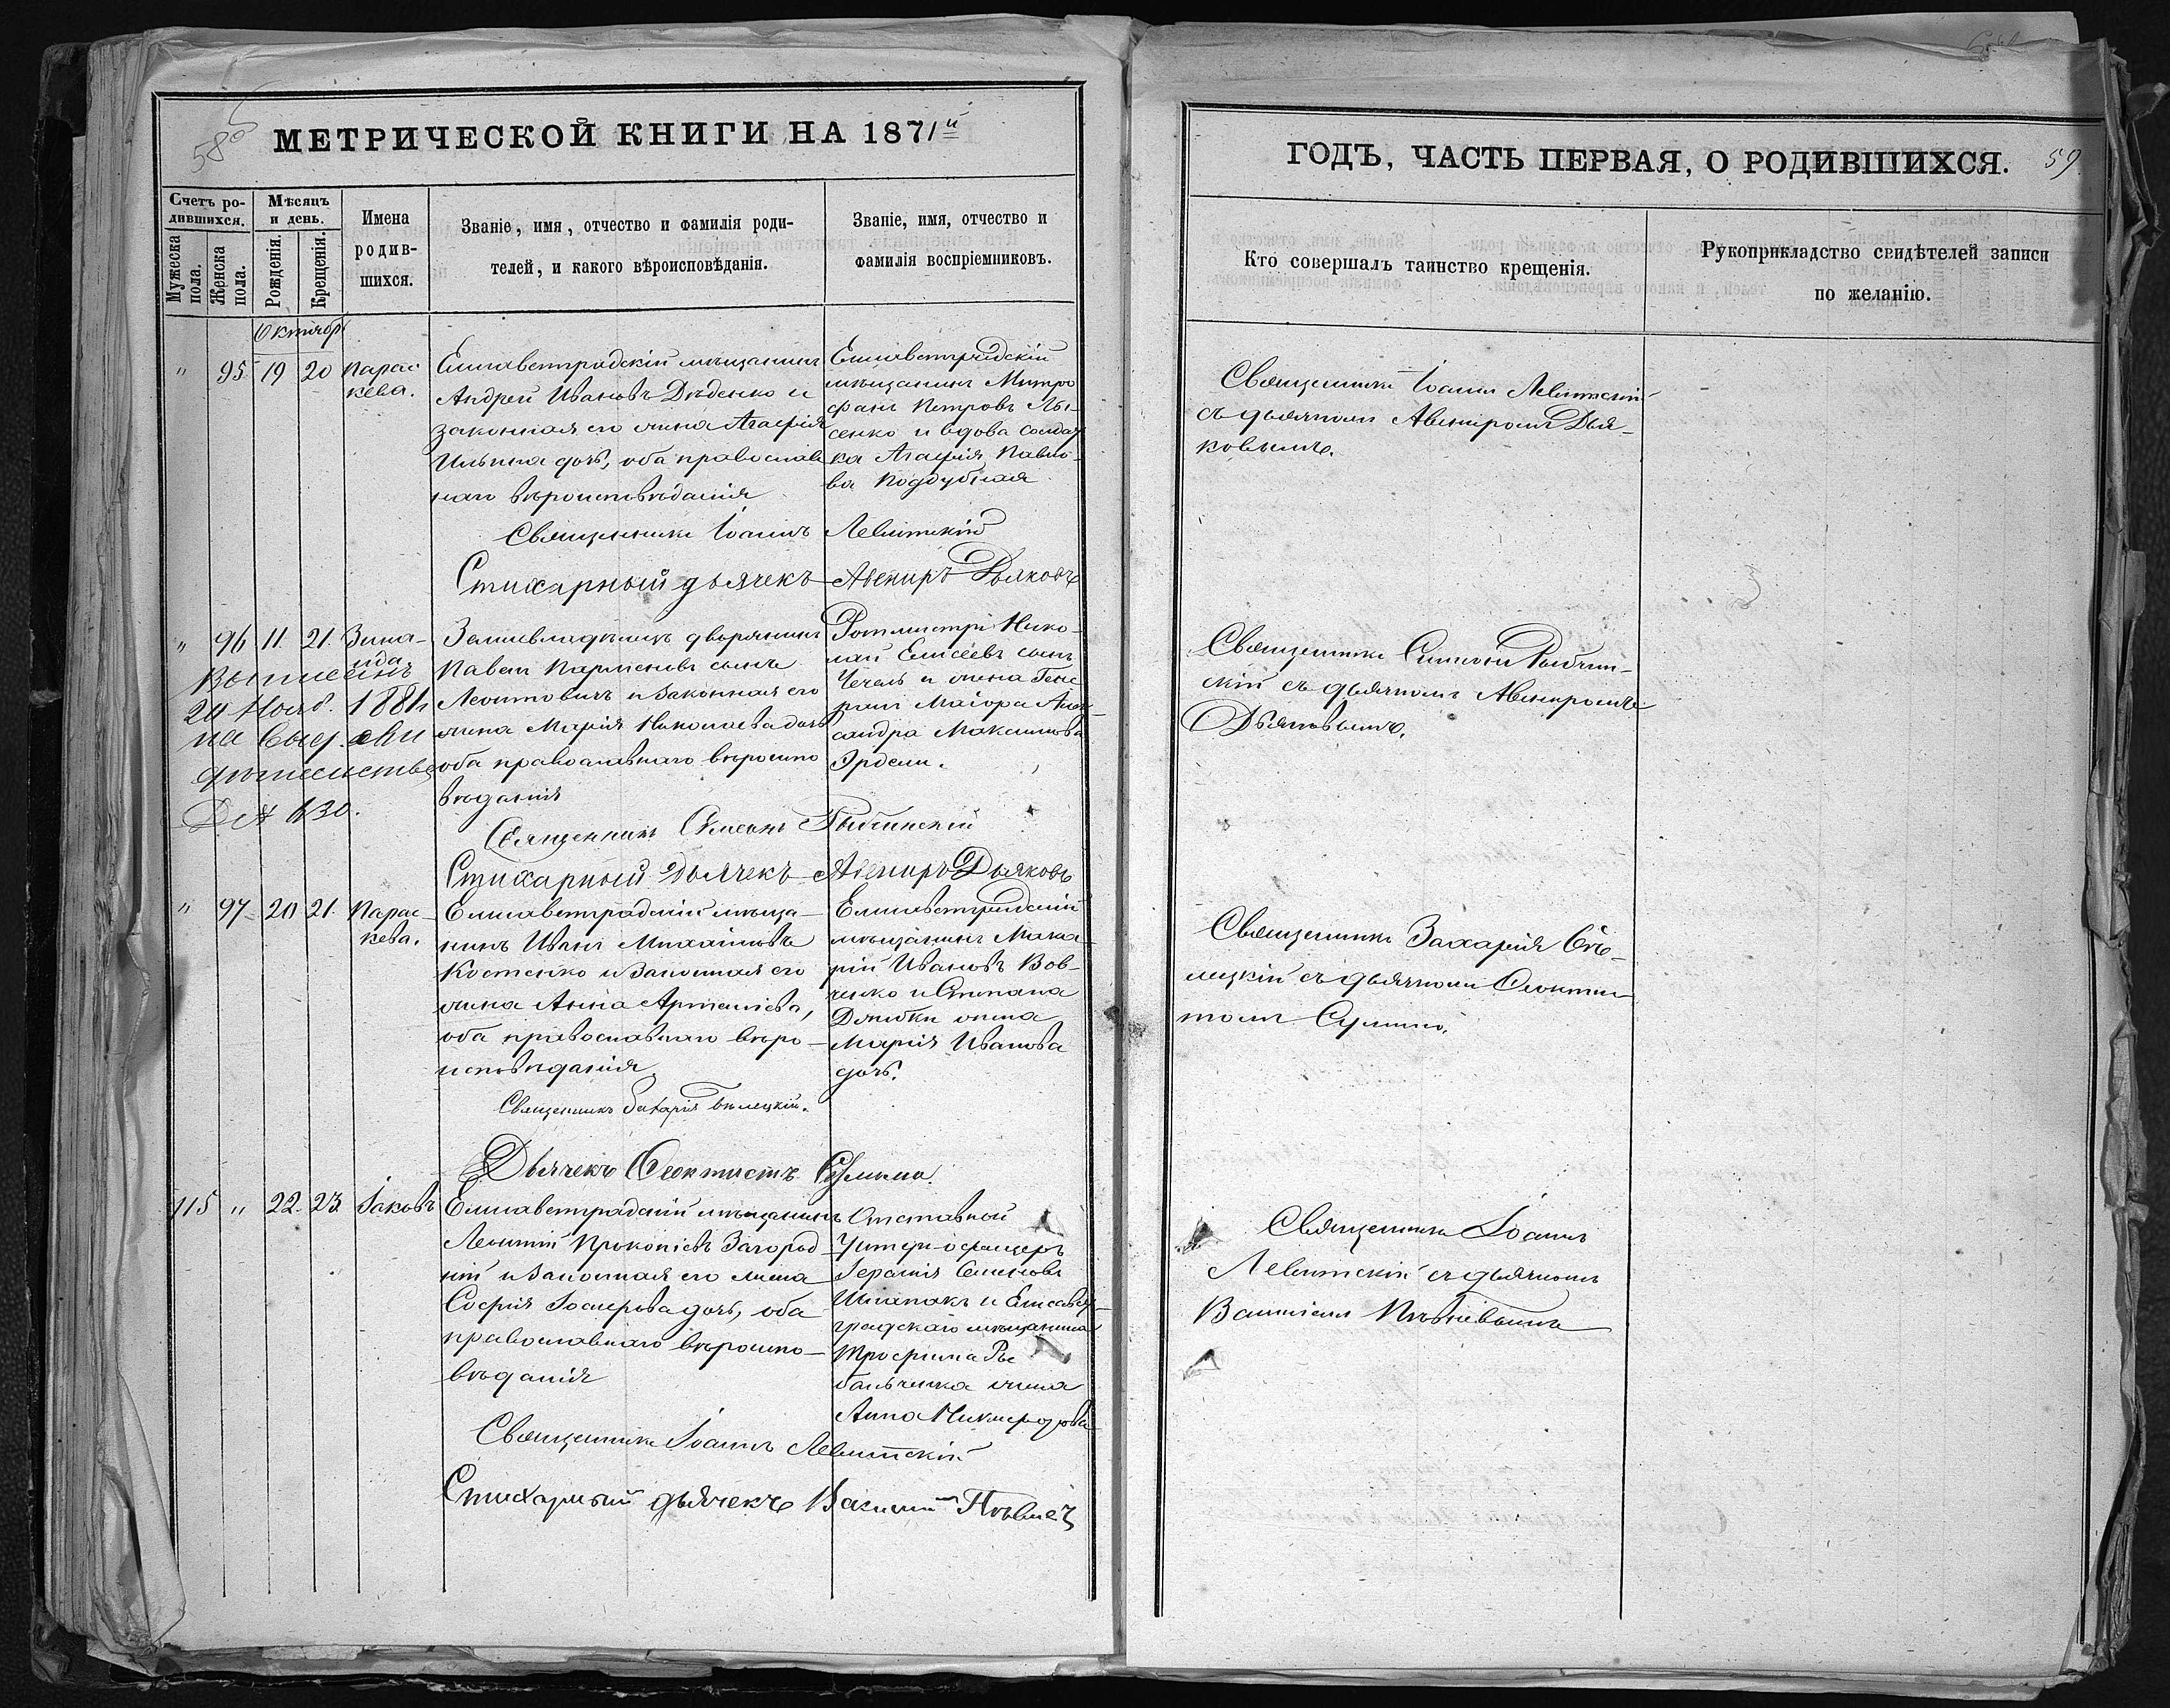 МЕТРИЧЕСКОЙ КНИГИ НА 1871й
Счетъ ро-
дившихся.
Мужеска
пола.
Женска
пола.
Мѣсяцъ
и день.
Рожденія.
Крещенія.
Имена
родив-
шихся.
Званіе, имя, отчество и фамилія роди-
телей, и какого вѣроисповѣданія.
Званіе, имя, отчество и
фамилія воспріемниковъ.
Октябрь
" 95 19 20 Парас-
кева.
Елисаветградскій мѣщанинъ
Андрей Ивановъ Дѣденко и
законная его жена Агафія
Ильина дочь, оба православ
наго вѣроисповѣданія
Елисаветградскій
мѣщанинъ Митро
фанъ Петровъ Лы-
сенко и вдова солдат
ка Агафія Павло-
ва Поддубная
Священникъ Іоаннъ Левитскій
Стихарный дьячекъ Авениръ Дьяковъ
" 96 11. 21. Зина-
ида
Выписанъ
20 Нояб. 1881г
на выд. сви
дѣтельства
630.
Землевладѣлецъ дворянинъ
Павелъ Парменовъ сынъ
Леонтовичъ и законная его
жена Марія Николаева дочь
оба православнаго вѣроиспо
вѣданія
Ротмистръ Нико-
лай Елисеевъ сынъ
и жена Гене
ралъ Маіора Алек-
сандра Максимова
Эрдели.
Священникъ Симеонъ Рыбчинскій
Стихарный Дьячекъ Авениръ Дьяковъ
" 97 20 21. Парас-
кева.
Елисаветградскій мѣща-
нинъ Иванъ Михайловъ
Костенко и законная его
жена Анна Артеміева,
оба православнаго вѣро-
исповѣданія
Елисаветградскій
мѣщанинъ Мака-
рій Ивановъ Вов-
ченко и Степана
жена
Марія Иванова
дочь.
Священникъ Захарія Бѣлецкій.
Дьячекъ Ѳеоктистъ Сулима.
115 " 22. 23 Іаковъ
Елисаветградскій мѣщанинъ
Леонтій Прокопіевъ Загород
ній и законная его жена
Софія Іосифова дочь, оба
православнаго вѣроиспо-
вѣданія
Отставной
Унтеръ-офицеръ
Семеновъ
Шпакъ и Елисавет-
градскаго мѣщанина
Трофима Ры
бальченка жена
Анна Никифорова
Священникъ Іоаннъ Левитскій
Стихарный дьячекъ Василій Пѣвнев
ГОДЪ, ЧАСТЬ ПЕРВАЯ, О РОДИВШИХСЯ.
59
Кто совершалъ таинство крещенія.
Рукоприкладство свидѣтелей записи
по желанію.
Священникъ Іоаннъ Левитскій
съ дьячкомъ Авениромъ Дья-
ковымъ.
Священникъ Симеонъ Рыбчин-
скій съ дьячкомъ Авениромъ
Дьяковымъ.
Священникъ Захарія Бѣ-
лецкій съ дьячкомъ Ѳеоктис-
томъ Сулимою.
Священникъ Іоаннъ
Левитскій съ дьячкомъ
Василіемъ Пѣвневымъ